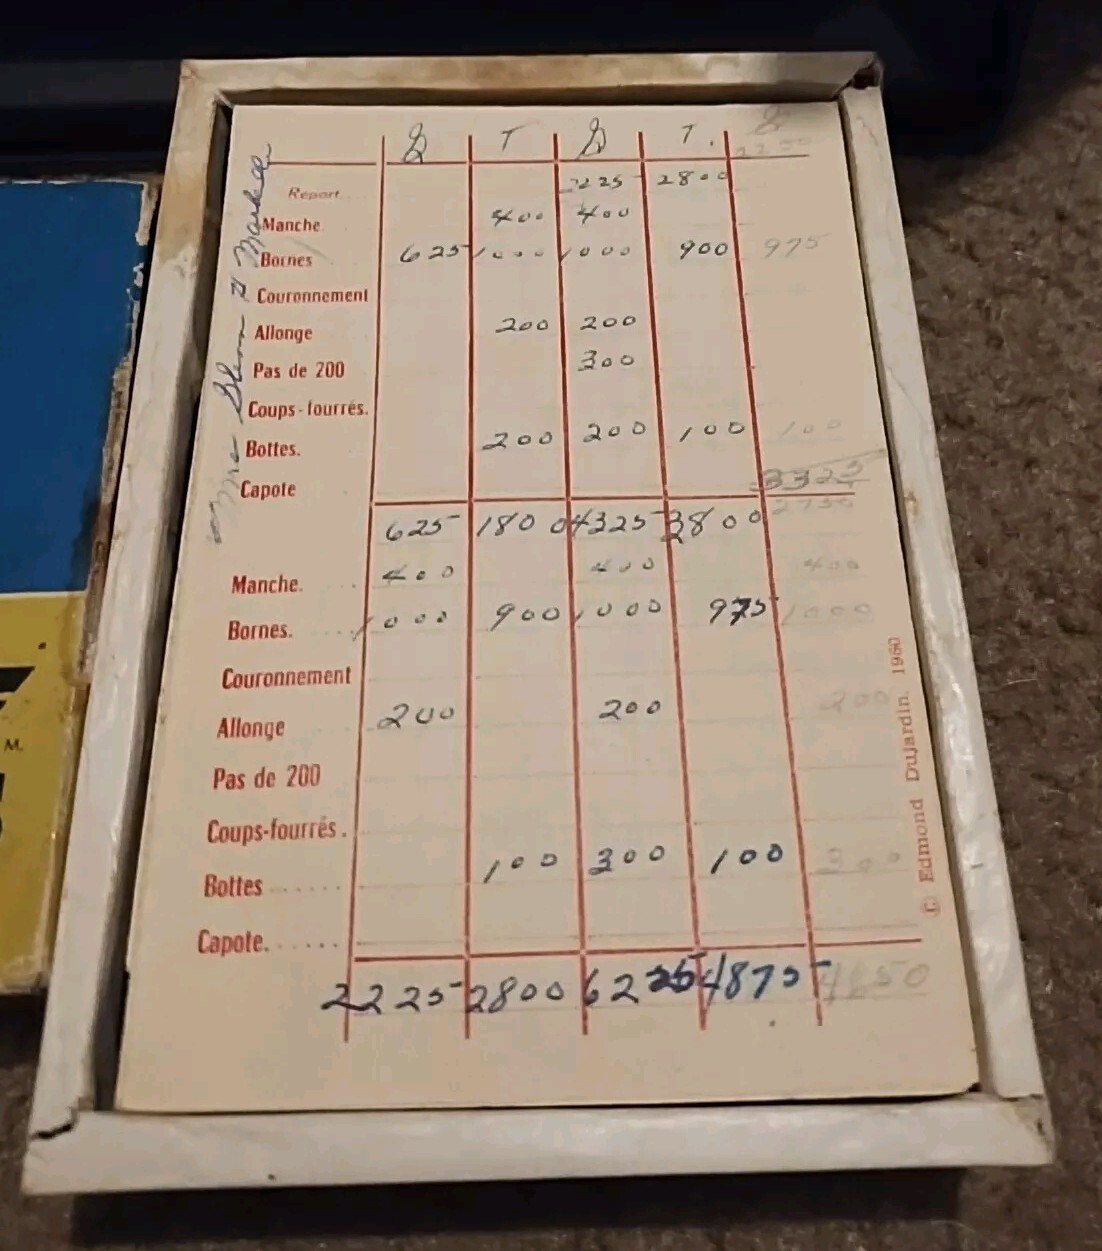 G T G T. G
2250
Report.. 2225 2800
Manche 400 400
Bornes 625 1000 1000 900 975
Couronnement
Allonge 200 200
Pas de 200 300
Coups-fourrés.
Bottes. 200 200 100 100
Capote 3325
625 1800 4325 3800 2750
Manche. 400 400 400
Bornes. 1000 900 1000 975 1000
Couronnement
Allonge 200 200 200
Pas de 200
Coups-fourrés.
Bottes 100 300 100 300
Capote.
2225 2800 6225 4875 4650
© Edmond Dujardin. 1960
M.